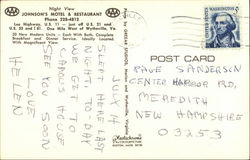 Night View
JOHNSON'S MOTEL & RESTAURANT
Phone 228-4812
Lee Highway, U.S. 11 — just off U.S. 21 and
U.S. 52 and I 81. One Mile West of Wytheville, Va.
20 New Modern Units - Each With Bath. Complete
Breakfast and Dinner Service. Ideally Located.
With Magnificent View.
POST CARD
SLEPT HERE LAST
NIGHT TO DAY
WE GET TO
CAROL'S HOUSE
SEE YOU SOON
LOVE
HELEN
DAVE SANDERSON
CENTER HARBOR RD,
MEREDITH
NEW HAMPSHIRE
03253